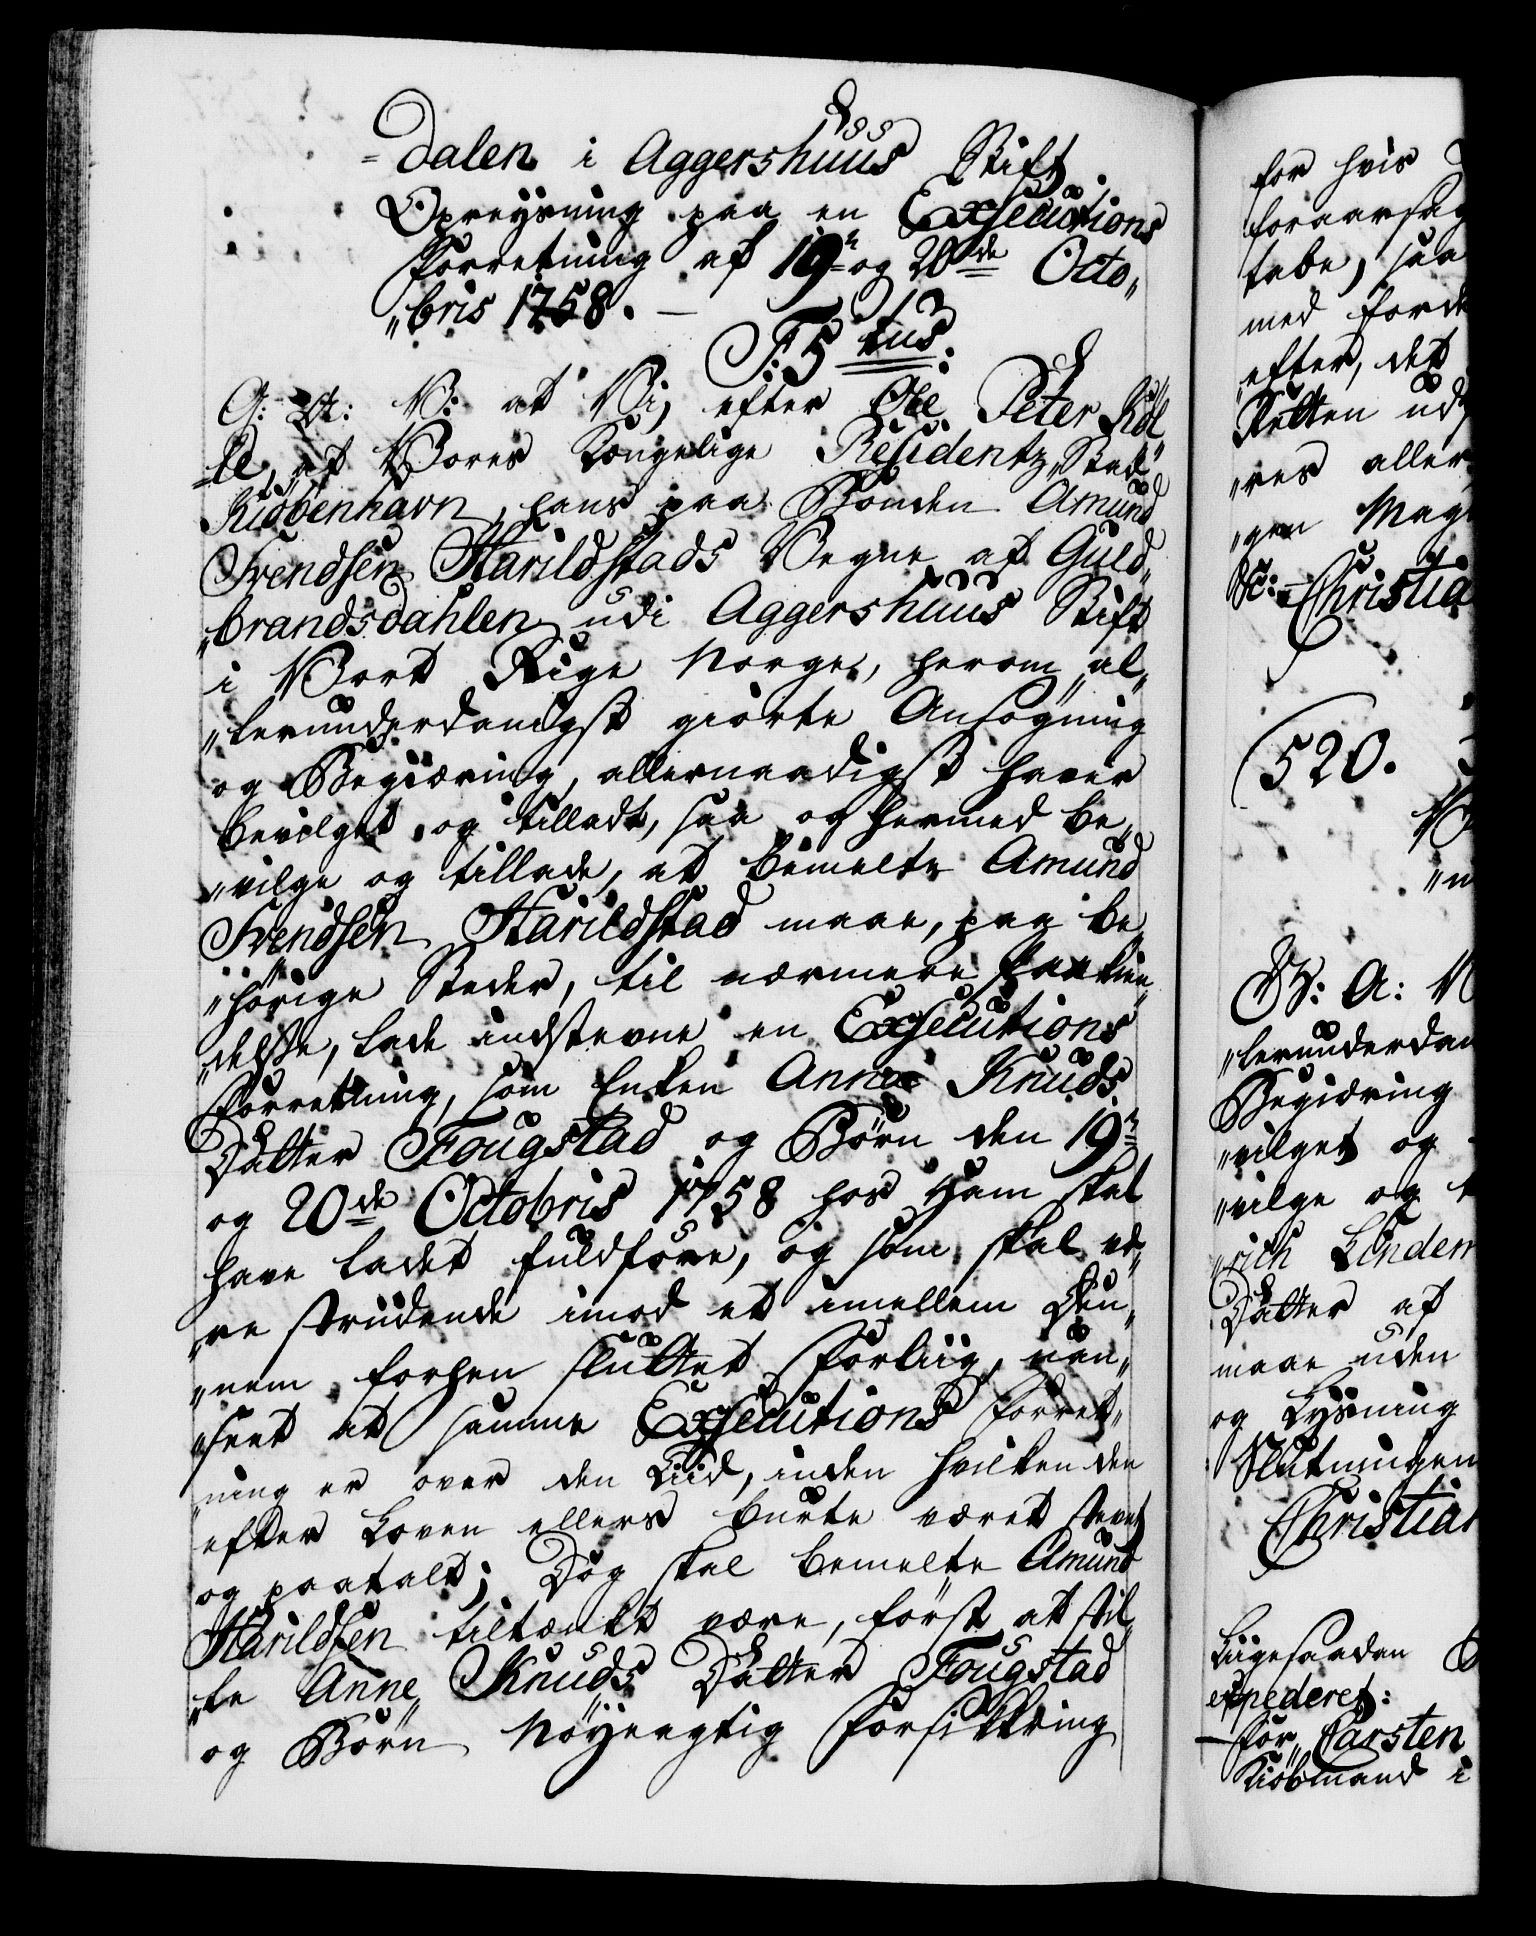 =dalen i Aggershuus Stift
Opreysning paa en Exsecutions
Forretning af 19de og 20de Octo„
„bris 1758. —
F: 5tus:
G: A: V: at Vi, efter Ole Peter
af Vores Kongelige Residentz Stad
Kiøbenhavn, hans paa Bonden Amund
Svendsen Harildstads Vegne af Guld„
„brandsdahlen udi Aggershuus Stift
i Vort Rige Norge, herom al„
„lerunderdanigst giorte Ansøgning
og Begiæring, allernaadigst haver
bevilget og tilladt, saa og hermed be„
„vilge og tillade, at bemelte Amund
Svendsen Harildstad maae, paa be„
„hørige Steder, til nærmere Paakien„
„delse, lade indstevne en Exsecutions
Forretning, som Enken Anne Knuds
Datter Fougstad og Børn den 19de
og 20de Octobris 1758 hos Ham skal
have ladet fuldføre, og som skal væ„
„re striidende imod et imellem Den„
„nem forhen sluttet Forliig, uan„
„seet at samme Exsecutions Forret„
ning er over den Tiid, inden hvilken den
efter Loven ellers burte været stevnt
og paatalt; Dog skal bemelte Amund
Harildsen tiltænkt være, først at stil„
„le Anne Knuds Datter Fougstad
og Børn Nøyeagtig Forsikkring
for hvis
foraarsag
tabe, saa
med forde
efter, det
Retten ud
„res aller
„gen Mag
&c: Christia
520.
G: A: V
„lerunderdan
Begiæring
„vilget og
„vilge og t
„rich Lindem
Datter af
maae uden
og Lysning
Slutningen
Christian
Liigesaadan
expederet:
— for Carsten
Kiøbmand i